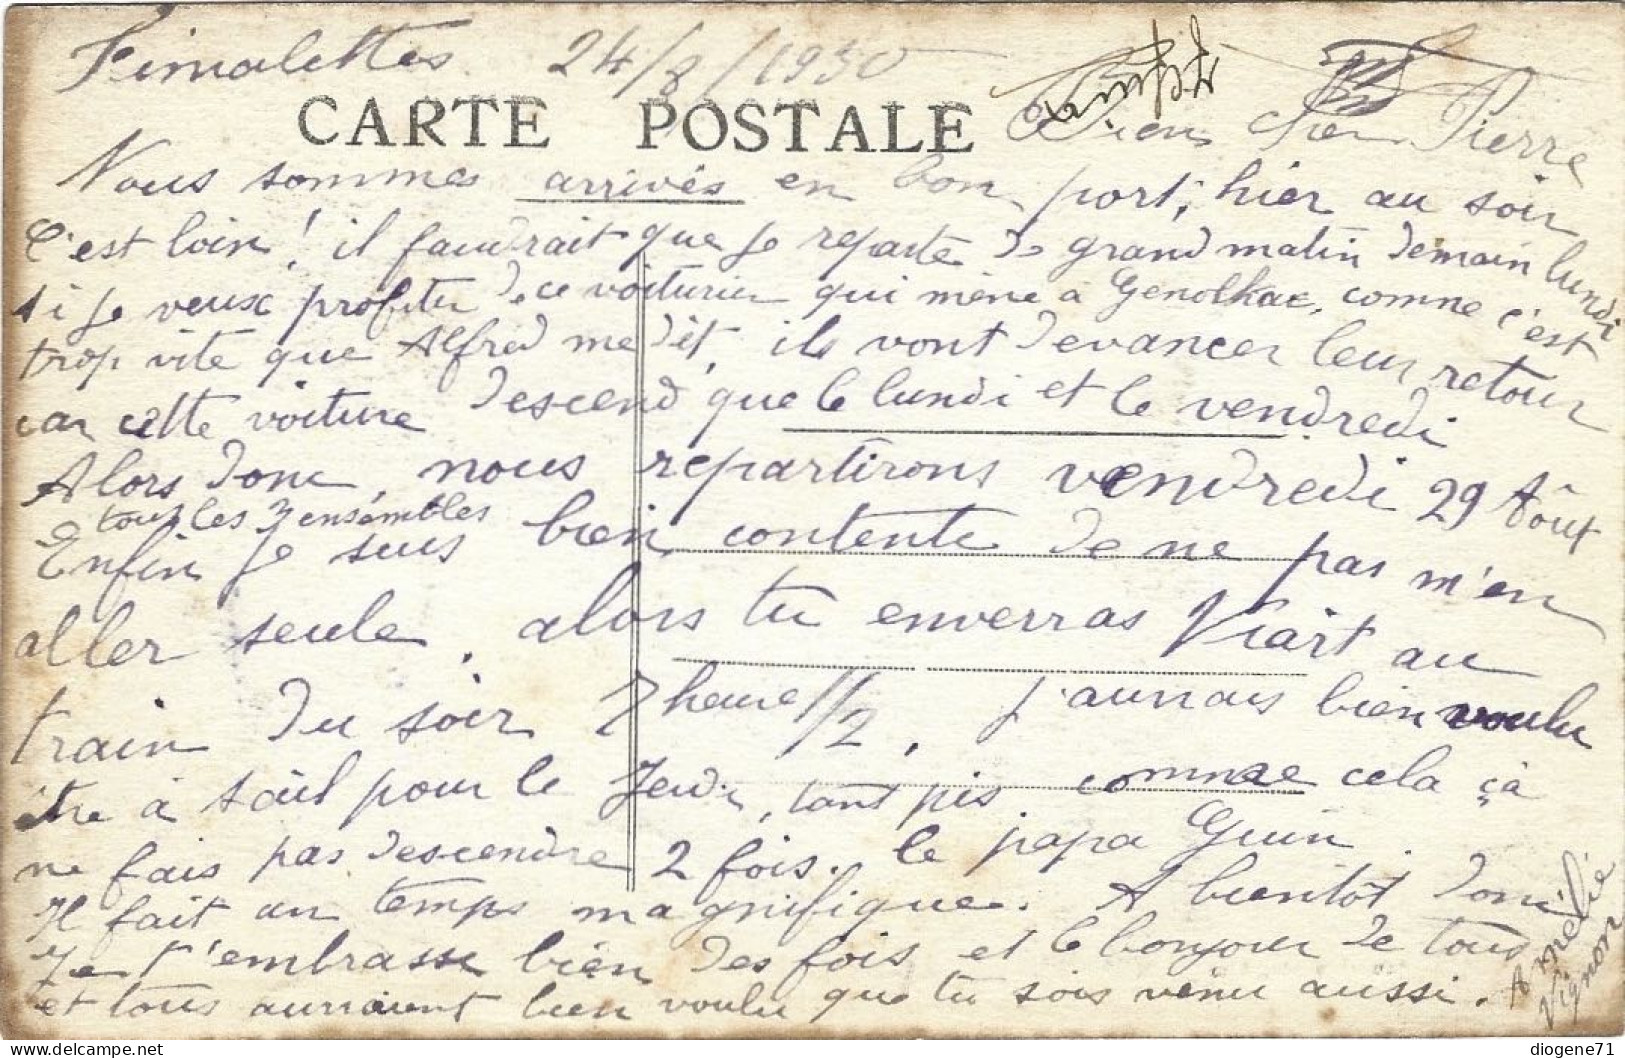 Fimalettes 24/8/1930
CARTE POSTALE
Bien cher Pierre
Nous sommes arrivés en bon port, hier au soir
C'est loin! il faudrait que je reparte de grand matin demain lundi
si je veux profiter de ce voiturier qui mène à Genolhac, comme c'est
trop vite que Alfred me dit, ils vont devancer leur retour
car cette voiture descend que le lundi et le vendredi
Alors donc, nous repartirons vendredi 29 Août
tous les 3 ensembles
Enfin je suis bien contente de ne pas m'en
aller seule, alors tu enverras Viart au
train du soir 7 heure 1/2, j'aurrais bien voulu
être à sail pour le Jeudi, tant pis comme cela çà
ne fais pas descendre 2 fois. le papa Guin.
Il fait un temps magnifique. A bientôt donc
Je t'embrasse bien des fois et le bonjour de tous
et tous aurraient bien voulu que tu sois venu aussi.
Amélie
Vignon
diogene71